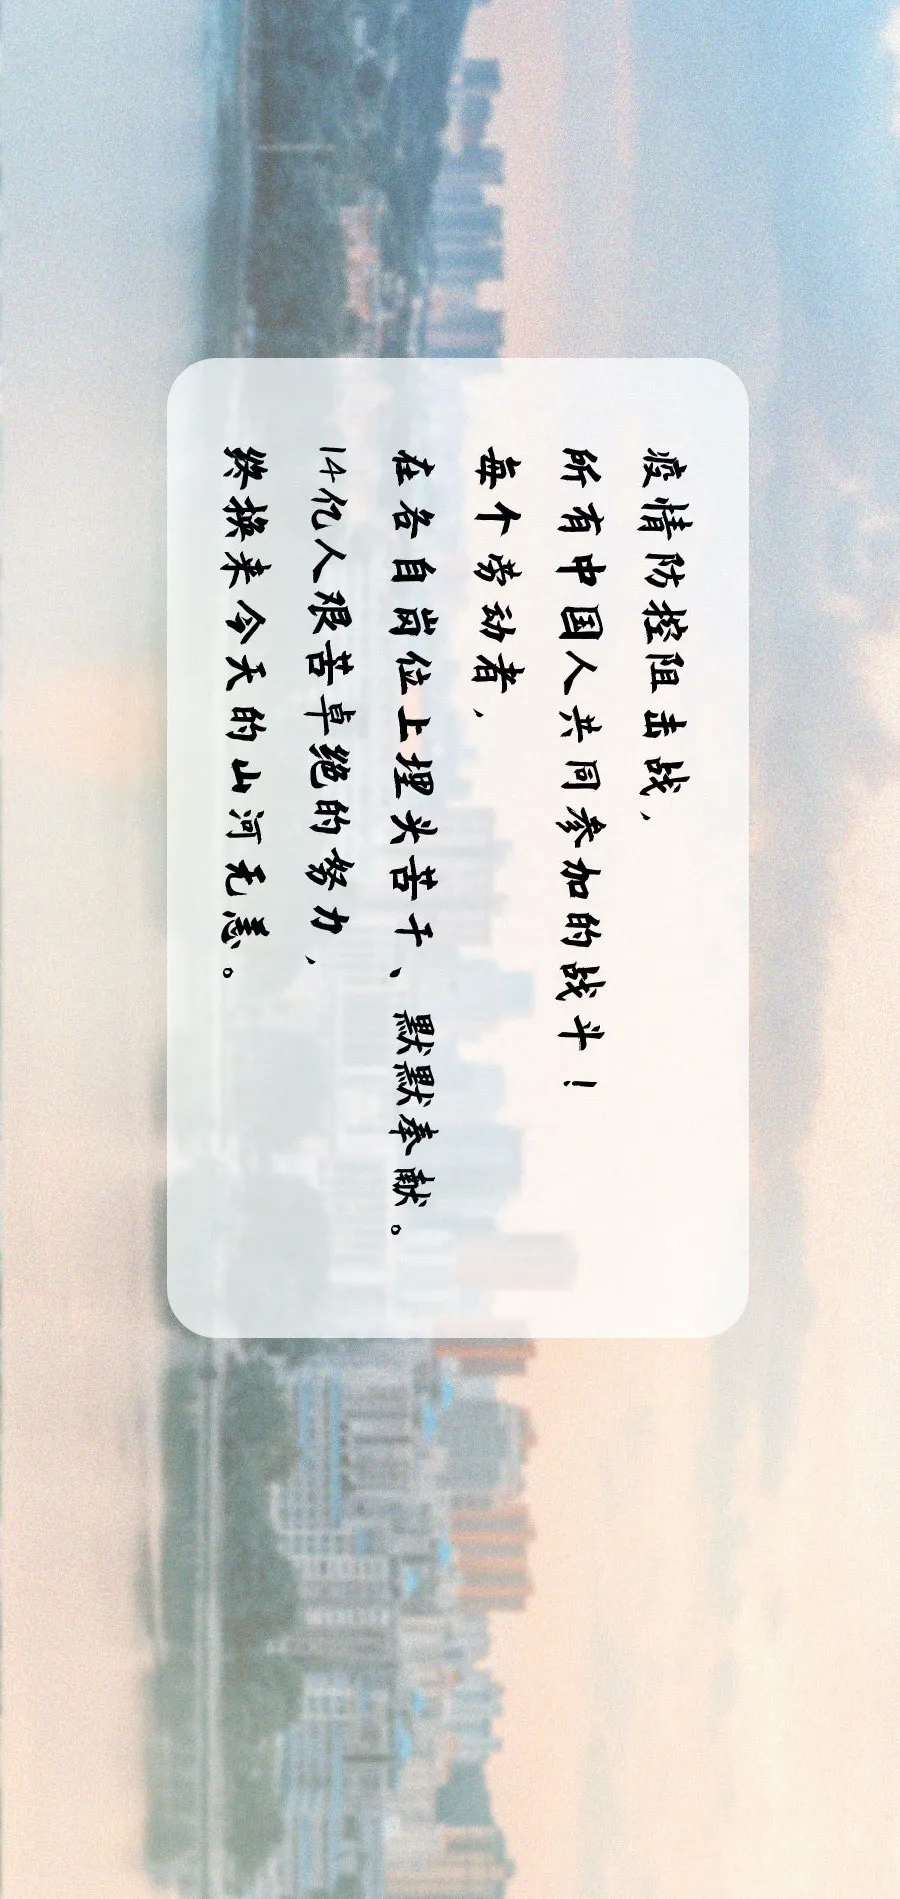 疫情防控阻击战，
所有中国人共同参加的战斗！
每个劳动者，
在各自岗位上埋头苦干、默默奉献。
14亿人艰苦卓绝的努力，
终换来今天的山河无恙。